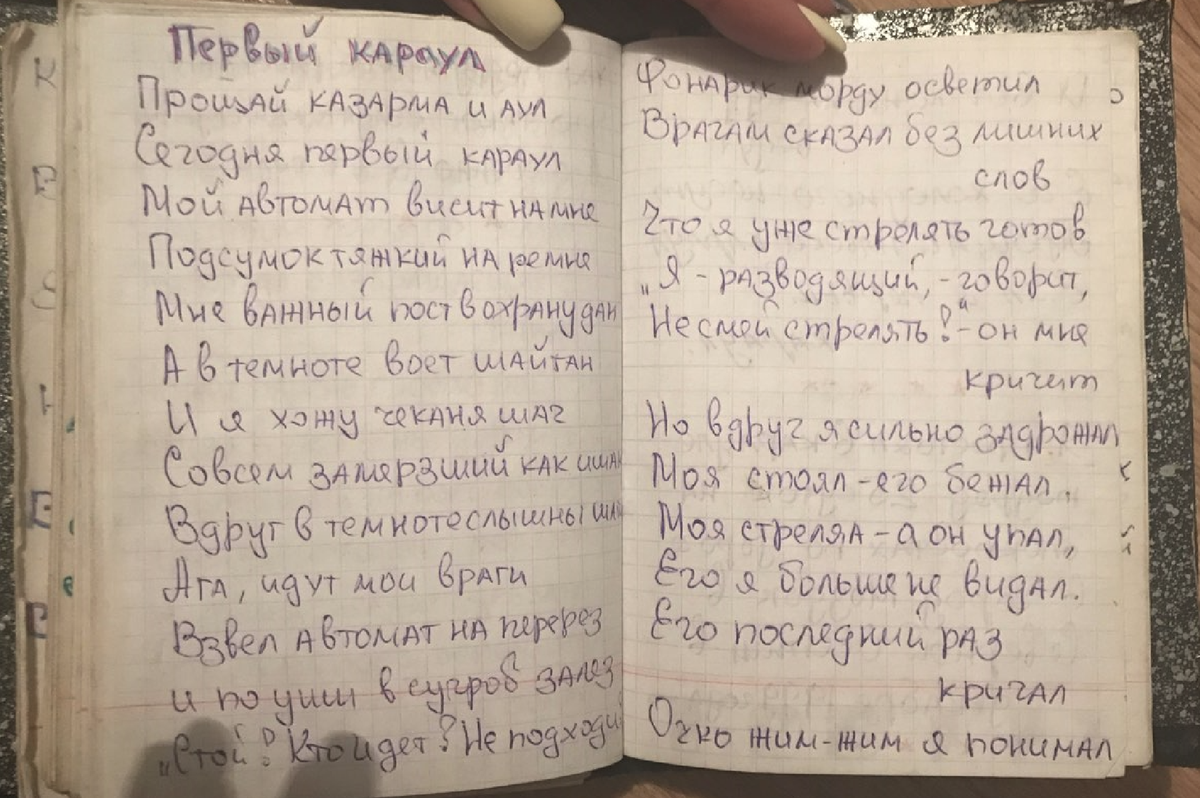 Первый караул
Прощай казарма и аул
Сегодня первый караул
Мой автомат висит на мне
Подсумок тяжкий на ремне
Мне важный пост в охрану дан
А в темноте воет шайтан
И я хожу чеканя шаг
Совсем замерзший как
Вдруг в темноте слышны
Ага, идут мои враги
Взвел автомат на перерез
и по уши в сугроб залез
„Стой! Кто идет? Не подходи
Фонарик морду осветил
Врагам сказал без лишних
слов
Что я уже стрелять готов
„Я - разводящий, - говорит,
Не смей стрелять!" - он мне
кричит
Но вдруг я сильно задрожал
Моя стоял - его бежал,
Моя стрелял - а он упал,
Его я больше не видал.
Его последний раз
кричал
Очко жим-жим я понимал
К
Р
С
Е
Р